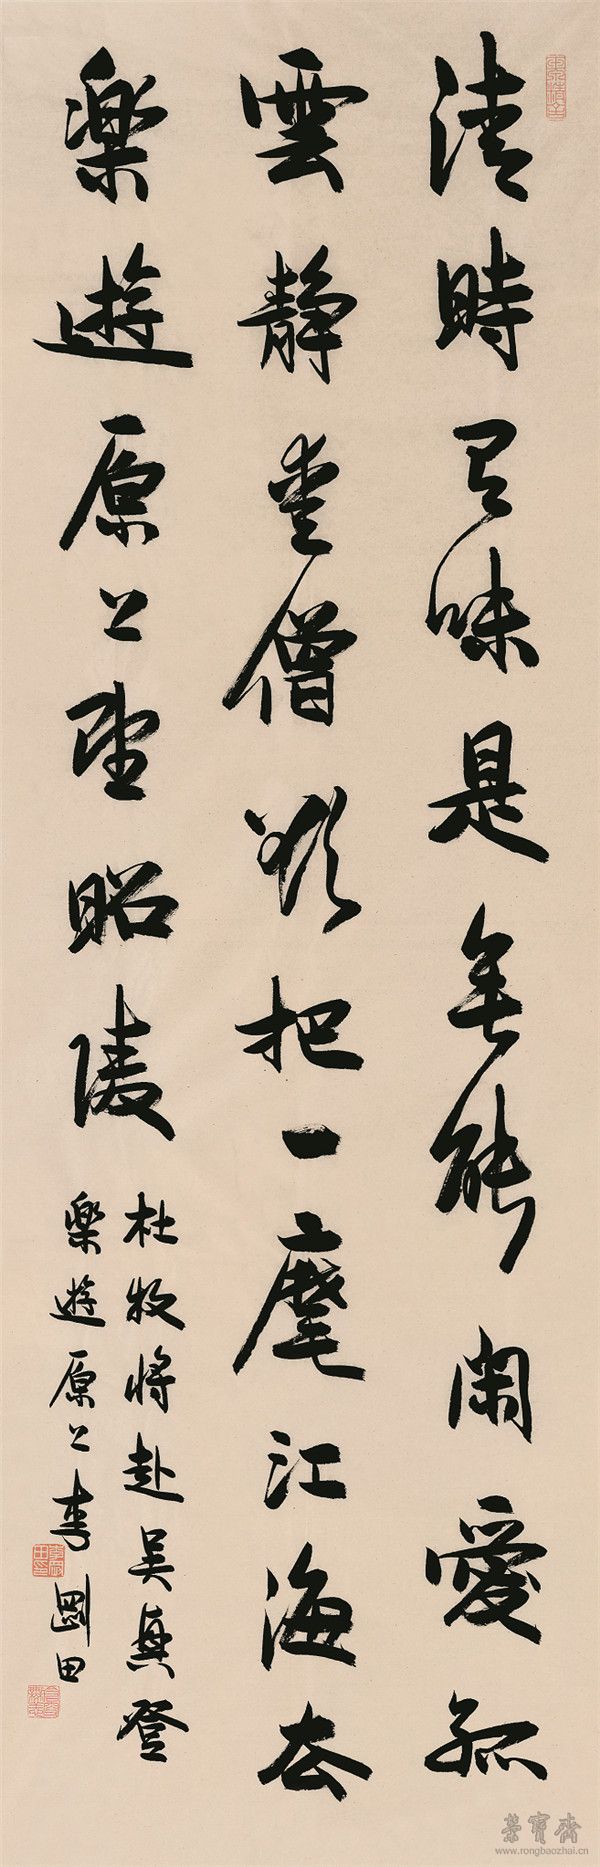 清時有味是無能閑愛孤
雲靜愛僧欲把一麾江海去
樂遊原上望昭陵
杜牧將赴吳興登
樂遊原上李剛田
榮寶齋
www.rongbaozhai.cn